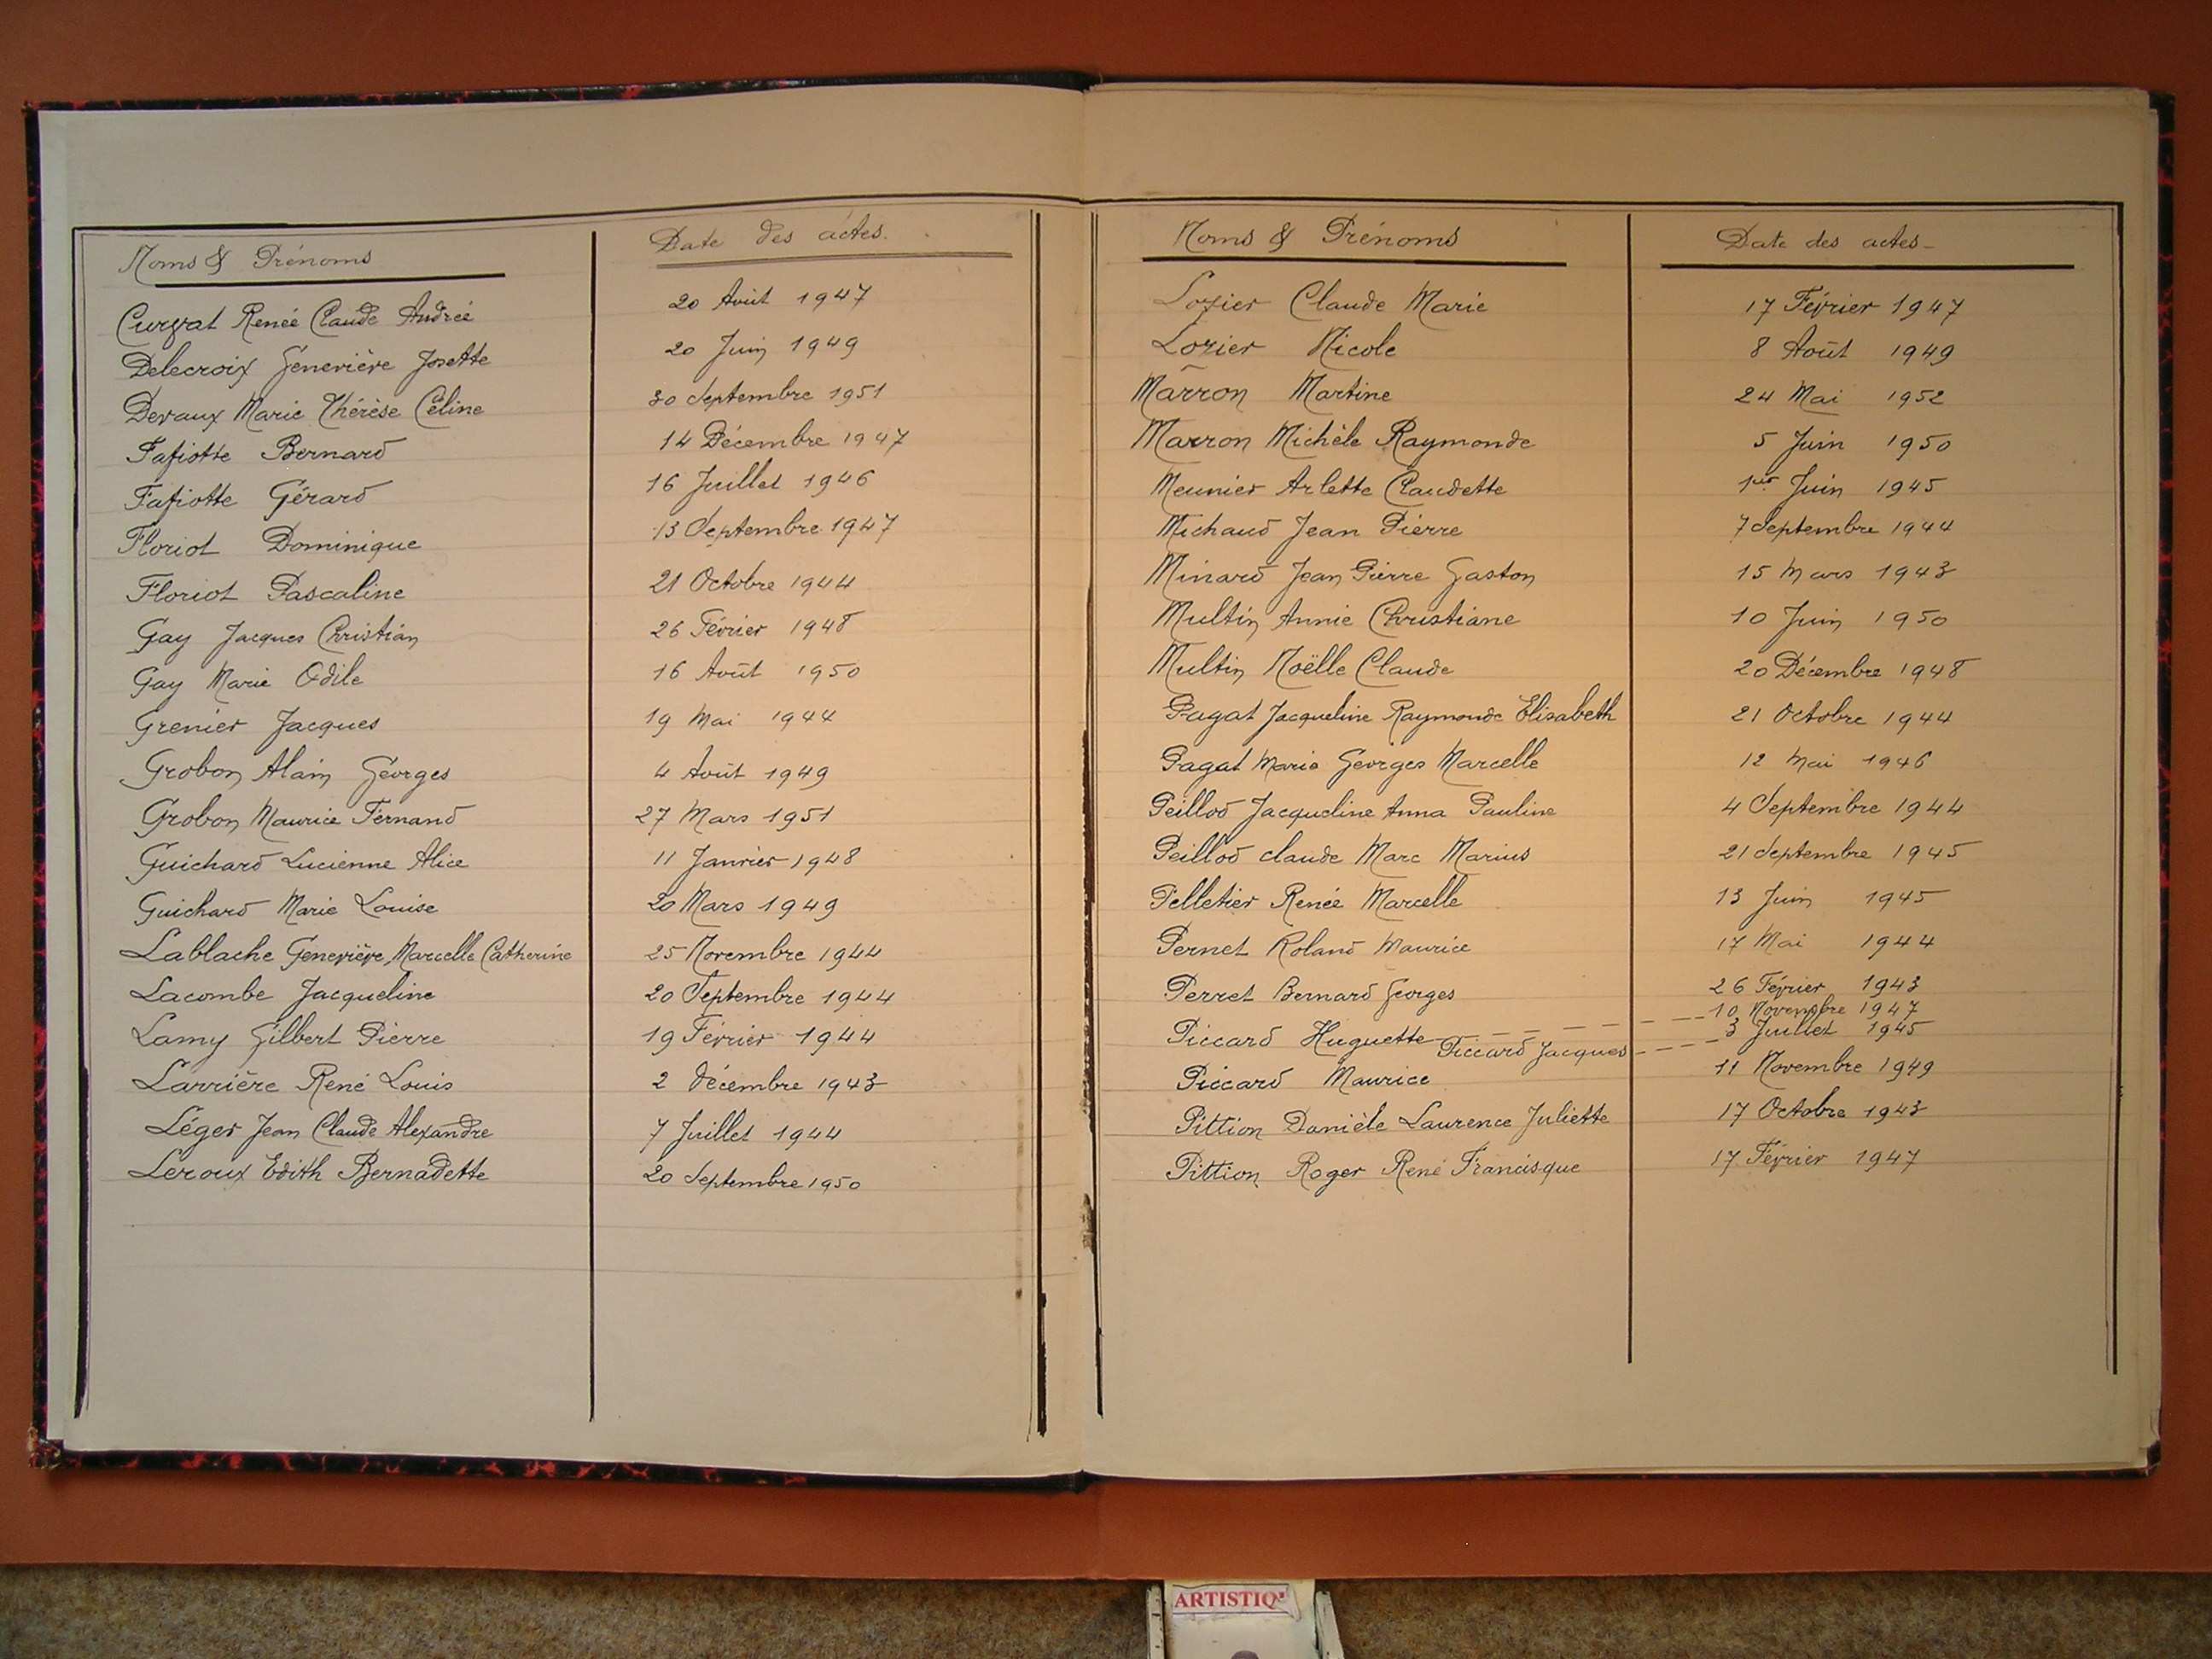 Noms & Prénoms Date des actes.
Curvat Renée Claude Andrée 20 Août 1947
Delecroix Geneviève Josette 20 Juin 1949
Devaux Marie Thérèse Céline 30 Septembre 1951
Fafiotte Bernard 14 Décembre 1947
Fafiotte Gérard 16 Juillet 1946
Floriot Dominique 13 Septembre 1947
Floriot Pascaline 21 Octobre 1944
Gay Jacques Christian 26 Février 1948
Gay Marie Odile 16 Août 1950
Grenier Jacques 19 Mai 1944
Grobon Alain Georges 4 Août 1949
Grobon Maurice Fernand 27 Mars 1951
Guichard Lucienne Alice 11 Janvier 1948
Guichard Marie Louise 20 Mars 1949
Lablache Geneviève Marcelle Catherine 25 Novembre 1944
Lacombe Jacqueline 20 Septembre 1944
Lamy Gilbert Pierre 19 Février 1944
Larrière René Louis 2 Décembre 1943
Léger Jean Claude Alexandre 7 Juillet 1944
Leroux Edith Bernadette 20 Septembre 1950
Noms & Prénoms Date des actes
Lozier Claude Marie 17 Février 1947
Lozier Nicole 8 Août 1949
Marron Martine 24 Mai 1952
Marron Michèle Raymonde 5 Juin 1950
Meunier Arlette Claudette 1er Juin 1945
Michaud Jean Pierre 7 Septembre 1944
Minard Jean Pierre Gaston 15 Mars 1943
Multin Annie Christiane 10 Juin 1950
Multin Noëlle Claude 20 Décembre 1948
Pagat Jacqueline Raymonde Elisabeth 21 Octobre 1944
Pagat Marie Georges Marcelle 12 Mai 1946
Peillod Jacqueline Anna Pauline 4 Septembre 1944
Peillod claude Marc Marius 21 Septembre 1945
Pelletier Renée Marcelle 13 Juin 1945
Pernet Roland Maurice 17 Mai 1944
Perret Bernard Georges 26 Février 1943
Piccard Huguette 10 Novembre 1947
Piccard Jacques 3 Juillet 1945
Piccard Maurice 11 Novembre 1949
Pittion Danièle Laurence Juliette 17 Octobre 1943
Pittion Roger René Francisque 17 Février 1947
ARTISTIQ